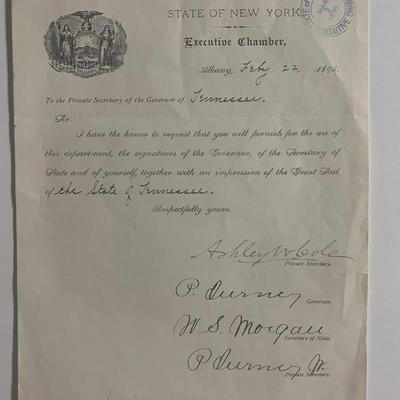 STATE OF NEW YORK
Executive Chamber,
Albany, Feby 22 1895.
To the Private Secretary of the Governor of Tennessee.
Sir:
I have the honor to request that you will furnish for the use of
this department, the signatures of the Governor, of the Secretary of
State and of yourself, together with an impression of the Great Seal
of the State of Tennessee.
Respectfully yours,
Ashley W. Cole
Private Secretary.
P. Turney
Governor.
W. S. Morgan
Secretary of State.
P. Turney Jr.
Private Secretary.
EXECUTIVE CHAM